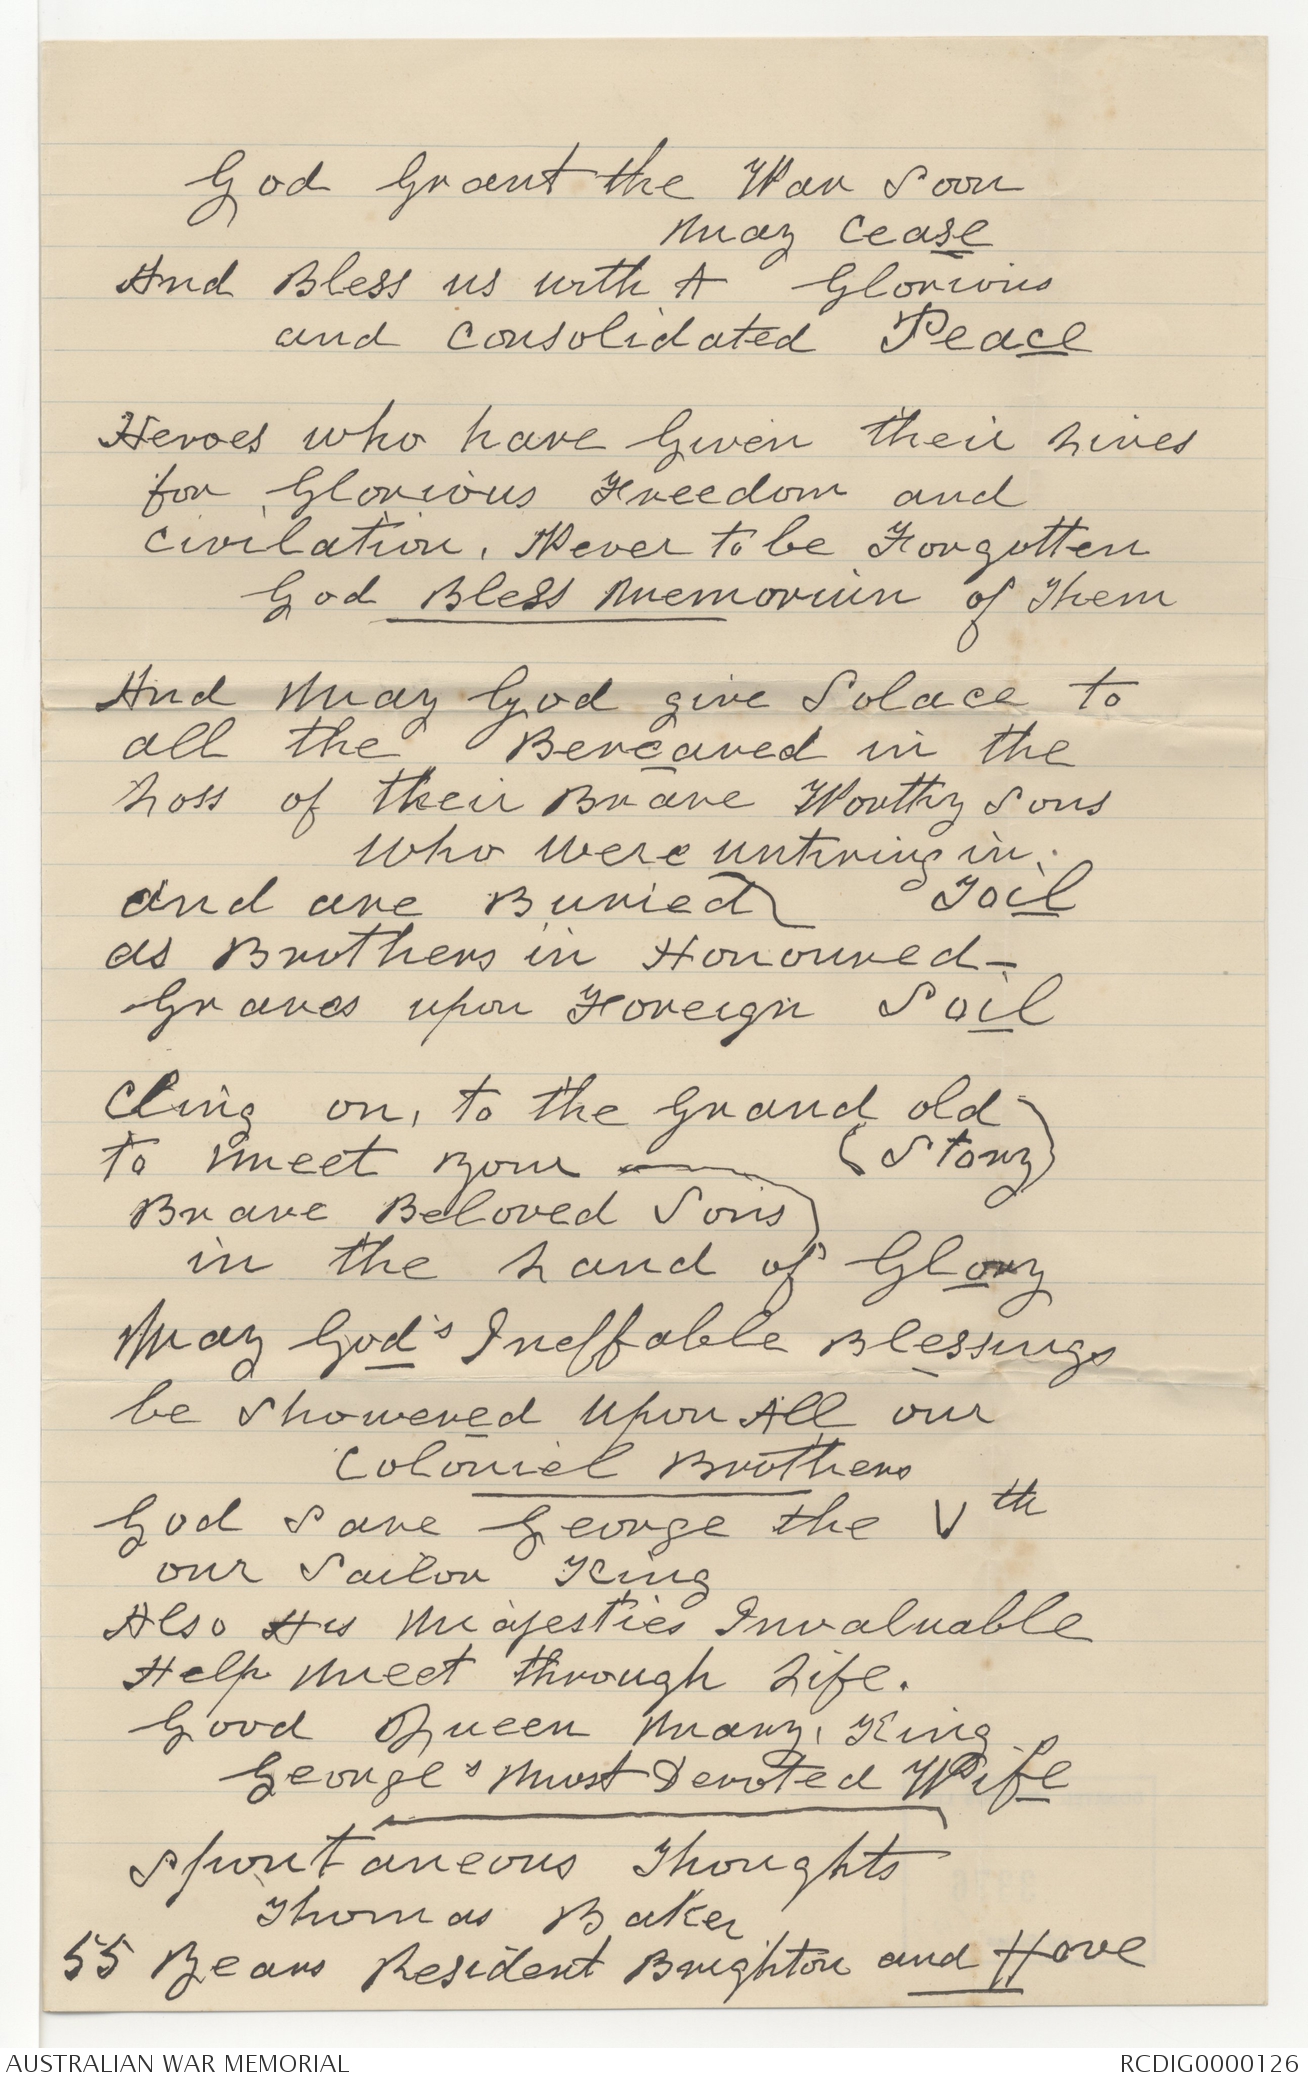 God Grant the War Soon
may cease
And Bless us with A Glorious
and consolidated Peace
Heroes who have Given their Lives
for Glorious Freedom and
civilation, Never to be Forgotten
God Bless Memorium of Them
And May God give Solace to
all the Bereaved in the
Loss of their Brave Worthy Sons
who were untiring in.
and are Buried Toil
as Brothers in Honoured-
Graves upon Foreign Soil
Cling on, to the Grand old
to meet your (Story)
Brave Beloved Sons
in the Land of Glory
May God's Ineffable Blessings
be showered upon All our
Coloniel Brothers
God Save George the Vth
our Sailor King
Also His Majesties Invaluable
Help meet through Life.
Good Queen Mary, King
George's Most Devoted Wife
Spontaneous Thoughts
Thomas Baker
55 Years Resident Brighton and Hove
AUSTRALIAN WAR MEMORIAL
RCDIG0000126